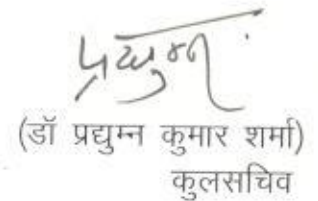 प्रद्युम्न
(डॉ प्रद्युम्न कुमार शर्मा)
कुलसचिव